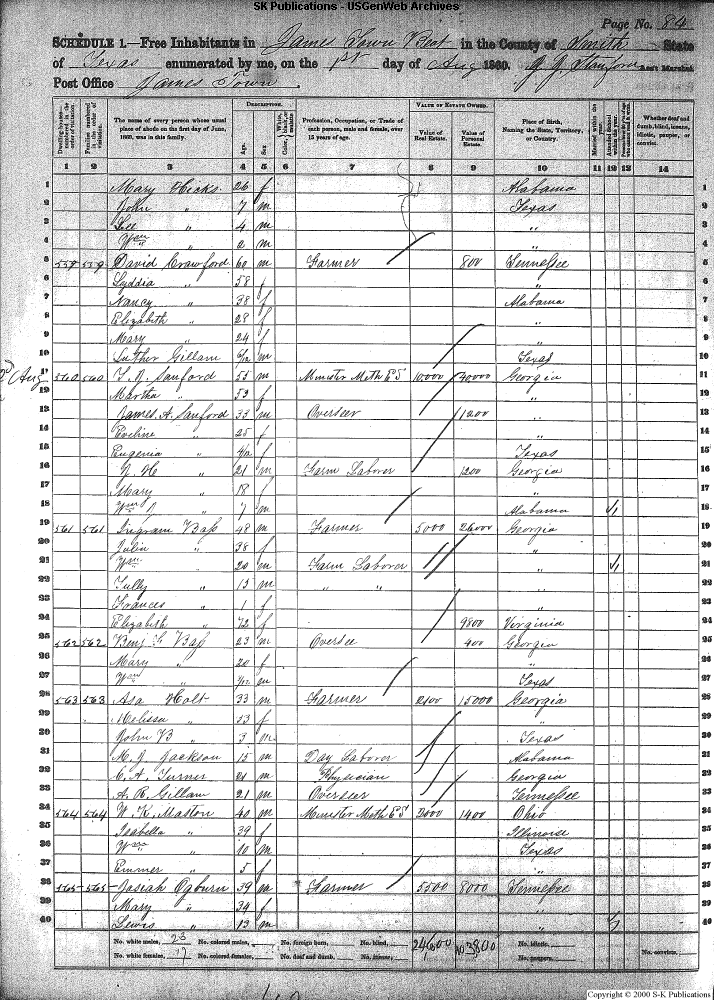 SK Publications - USGenWeb Archives
Page No. 84
SCHEDULE 1.—Free Inhabitants in James Town Beat in the County of Smith State
of Texas enumerated by me, on the 1st day of Aug 1860. Ass't Marshal.
Post Office James Town.
Dwelling-houses— numbered in the order of visitation.
Families numbered in the order of visitation.
The name of every person whose usual place of abode on the first day of June, 1860, was in this family.
DESCRIPTION.
Age.
Sex.
Color, White, black, or mulatto.
Profession, Occupation, or Trade of each person, male and female, over 15 years of age.
VALUE OF ESTATE OWNED.
Value of Real Estate.
Value of Personal Estate.
Place of Birth, Naming the State, Territory, or Country.
Whether deaf and dumb, blind, insane, idiotic, pauper, or convict.
1 2 3 4 5 6 7 8 9 10 11 12 13 14
1 Mary Hicks 26 f Alabama 1
2 John " 7 m Texas 2
3 Lee " 4 m " 3
4 Wm " 2 m " 4
5 559 559 David Crawford 60 m Farmer 800 Tennessee 5
6 Lyddia " 58 f " 6
7 Nancy " 38 f Alabama 7
8 Elizabeth " 28 f " 8
9 Mary " 24 f " 9
10 Luther Gillam 6/12 m Texas 10
2d Aug 11 560 560 Sanford 55 m Minister Meth E S 10000 Georgia 11
12 Martha " 53 f " 12
13 James A. Sanford 33 m Overseer 1200 " 13
14 Eveline " 25 f " 14
15 Eugenia " 4/12 f Texas 15
16 " 21 m Farm Laborer 1200 Georgia 16
17 Mary " 18 f " 17
18 Wm " 7 m Alabama 18
19 561 561 Ingram Bass 48 m Farmer 5000 26000 Georgia 19
20 Julia " 38 f " 20
21 Wm 20 m Farm Laborer " 21
22 Tully " 15 m " " " 22
23 Frances " 1 f " 23
24 Elizabeth " 72 f 9800 Virginia 24
25 562 562 Benj Bass 23 m Oversee 400 Georgia 25
26 Mary " 20 f " 26
27 Wm " m Texas 27
28 563 563 Asa Holt 33 m Farmer 15000 Georgia 28
29 Melissa " f " 29
30 John B " 3 m Texas 30
31 M. J. Jackson 15 m Day Laborer Alabama 31
32 C. A. Turner 21 m Physician Georgia 32
33 A. R. Gillam 21 m Overseer Tennessee 33
34 564 564 W. K. Maston 40 m Minister Meth E S 2000 1400 Ohio 34
35 Isabella " 39 f Illinois 35
36 Wm " 10 m Texas 36
37 Emmer " 5 f " 37
38 565 565 Josiah Ogburn 39 m Farmer 5500 8000 Tennessee 38
39 Mary " 34 f " 39
40 Lewis " 13 m " 40
No. white males, 23 No. colored males, No. foreign born, No. blind, No. idiotic, No. convicts,
No. white females, 17 No. colored females, No. deaf and dumb, No. insane, No. paupers,
Copyright © 2000 S-K Publications